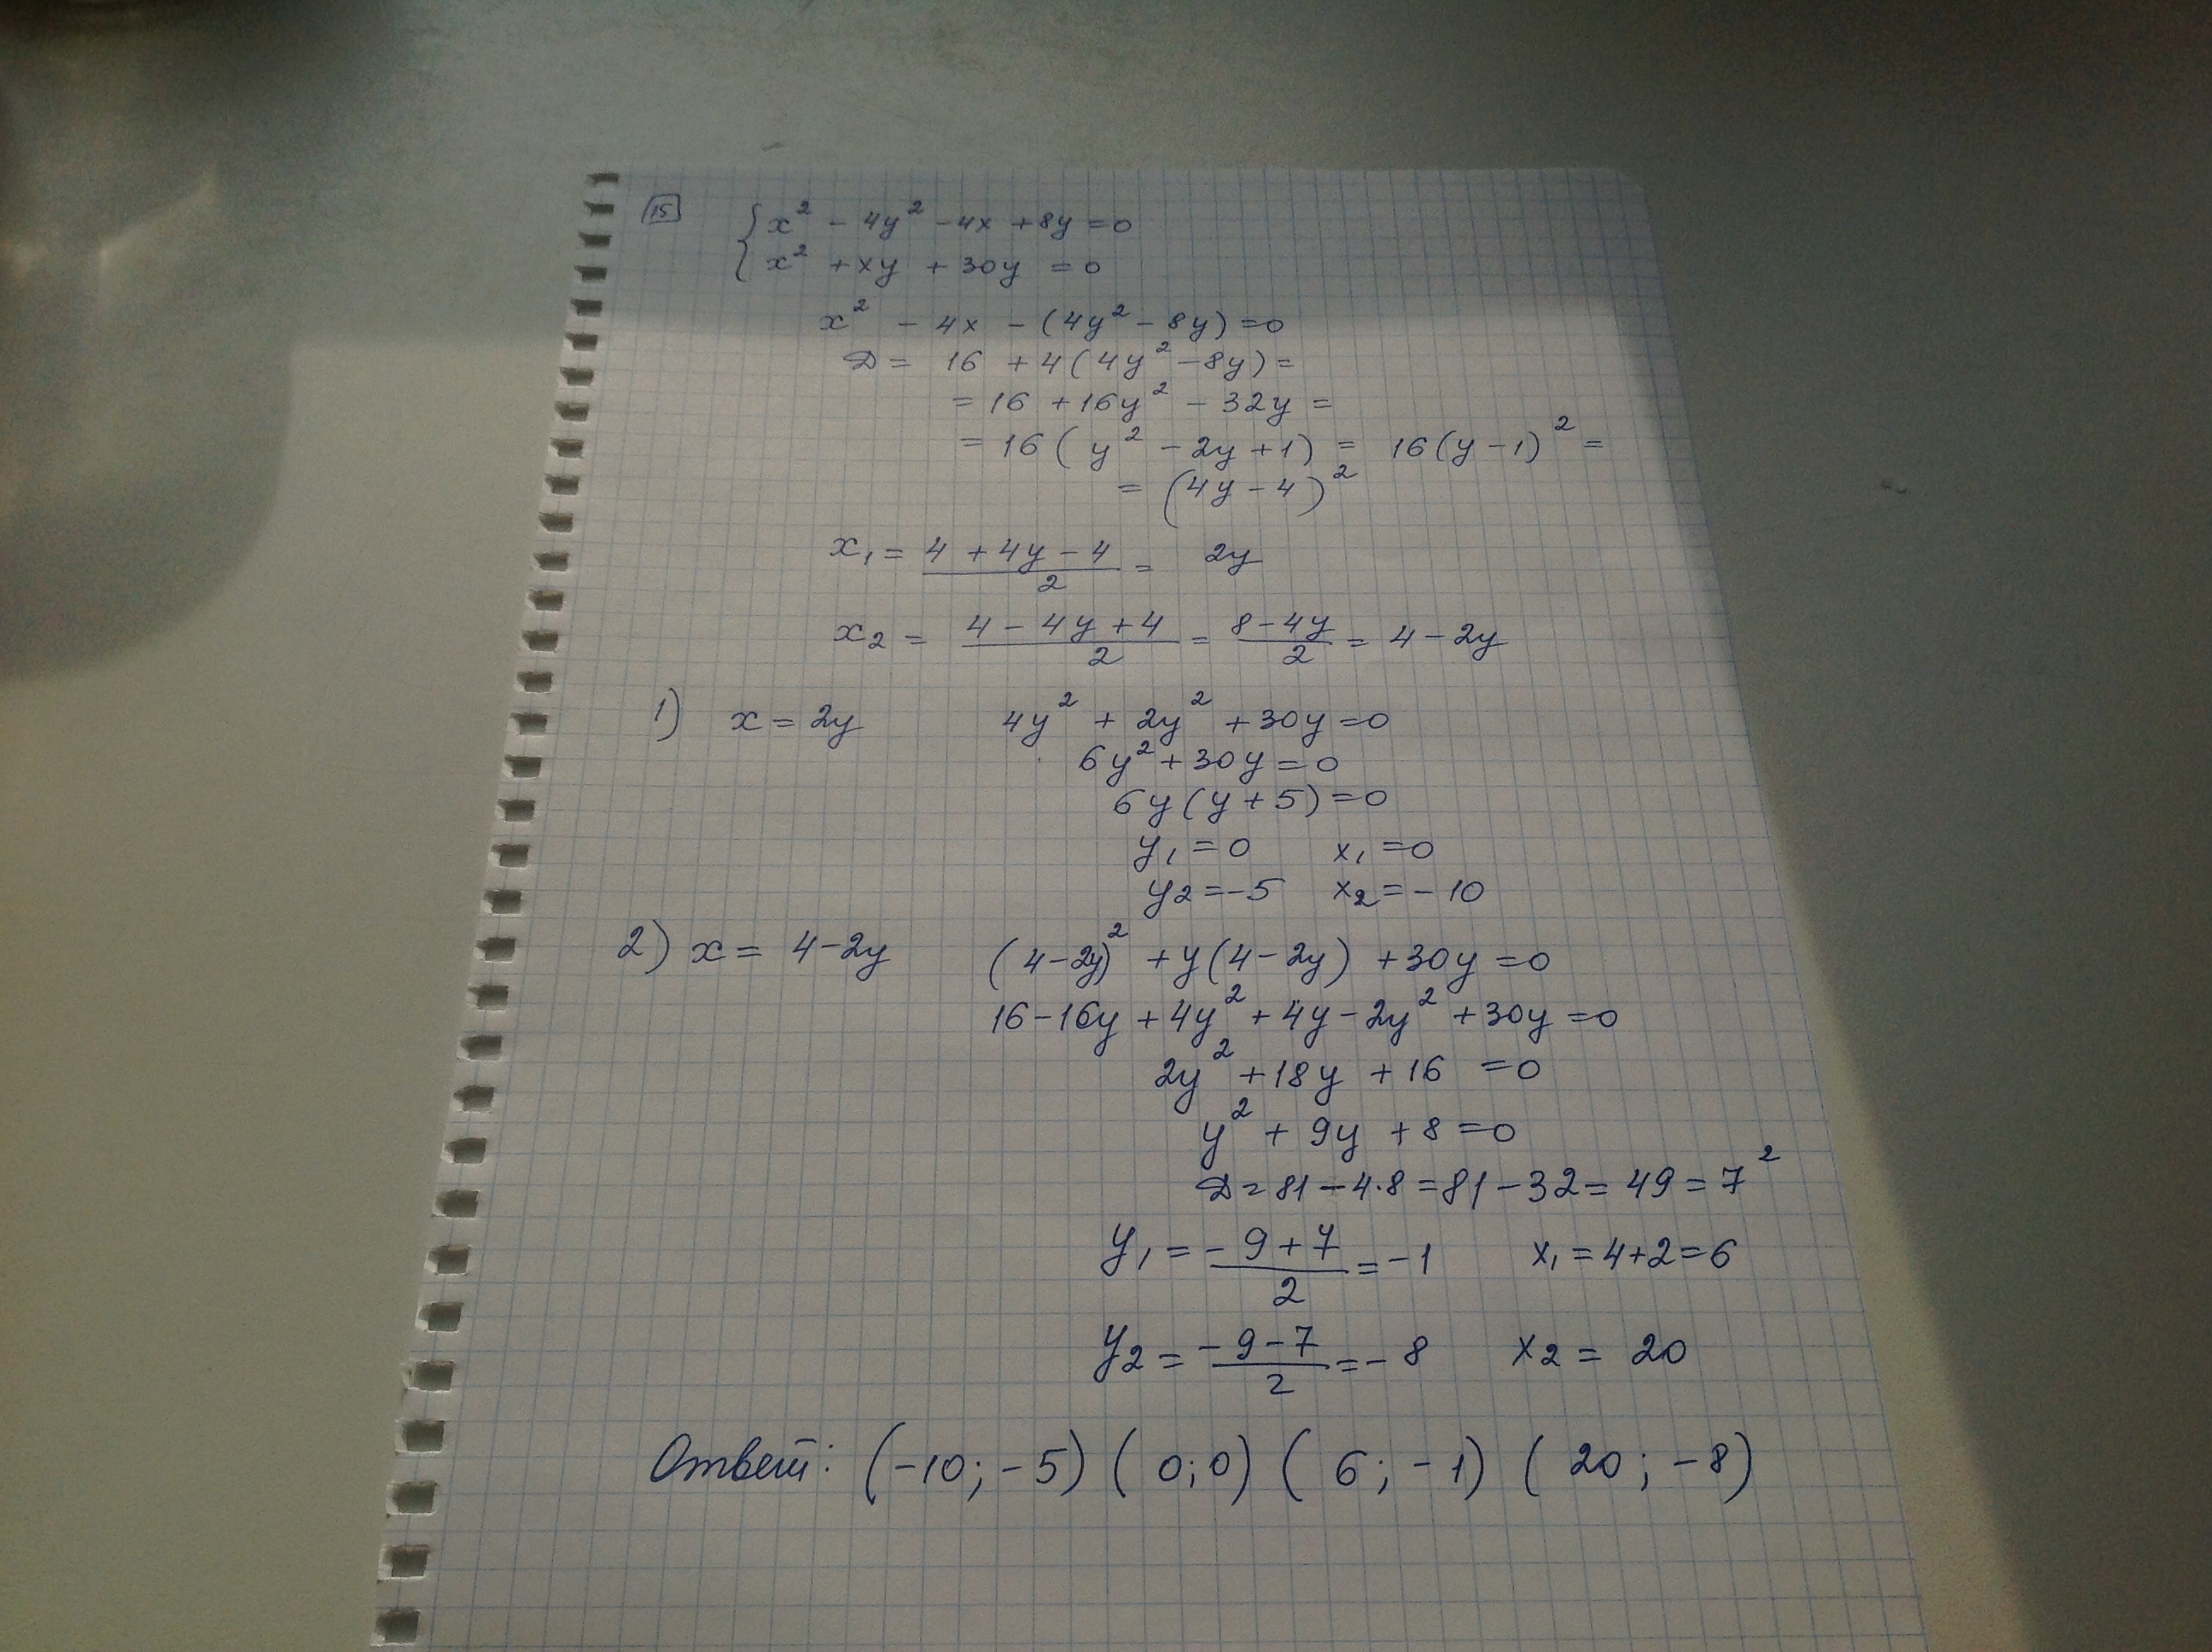 15 { x² - 4y² - 4x + 8y = 0
{ x² + xy + 30y = 0
x² - 4x - (4y² - 8y) = 0
D = 16 + 4(4y² - 8y) =
= 16 + 16y² - 32y =
= 16(y² - 2y + 1) = 16(y - 1)² =
= (4y - 4)²
x₁ = (4 + 4y - 4)/2 = 2y
x₂ = (4 - 4y + 4)/2 = (8 - 4y)/2 = 4 - 2y
1) x = 2y 4y² + 2y² + 30y = 0
6y² + 30y = 0
6y(y + 5) = 0
y₁ = 0 x₁ = 0
y₂ = -5 x₂ = -10
2) x = 4 - 2y (4 - 2y)² + y(4 - 2y) + 30y = 0
16 - 16y + 4y² + 4y - 2y² + 30y = 0
2y² + 18y + 16 = 0
y² + 9y + 8 = 0
D = 81 - 4·8 = 81 - 32 = 49 = 7²
y₁ = (-9 + 7)/2 = -1 x₁ = 4 + 2 = 6
y₂ = (-9 - 7)/2 = -8 x₂ = 20
Ответ: (-10; -5) (0; 0) (6; -1) (20; -8)